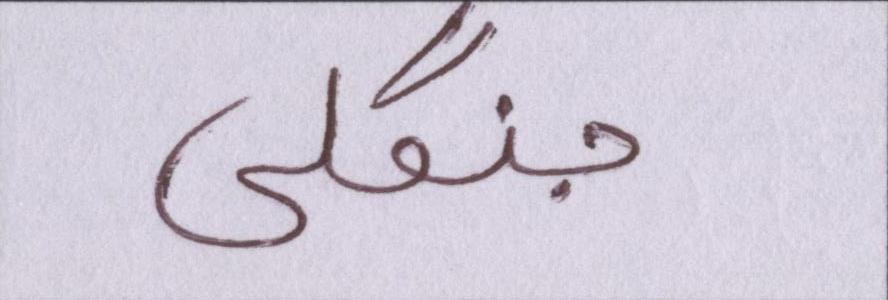 جنگلی